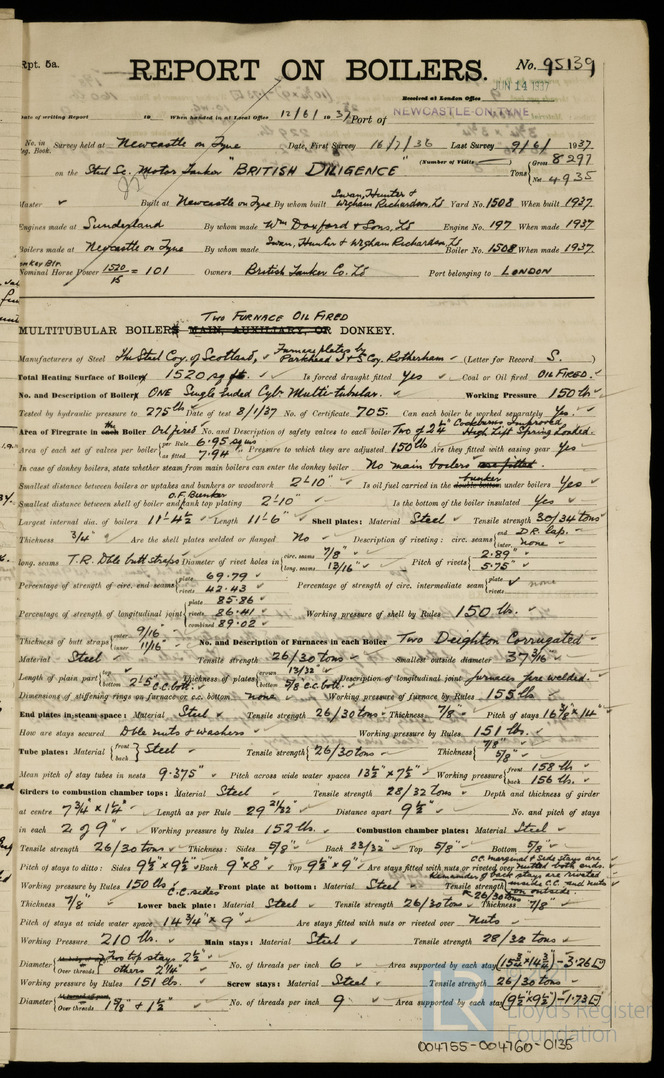 Rpt. 5a.
REPORT ON BOILERS.
No. 95139
Received at London Office JUN 14 1937
Date of writing Report 19 When handed in at Local Office 12/6/ 1937 Port of NEWCASTLE-ON-TYNE
No. in Reg. Book. Survey held at Newcastle on Tyne Date, First Survey 16/7/36 Last Survey 9/6/ 1937
on the Steel Sc. Motor Tanker "BRITISH DILIGENCE" (Number of Visits ) Tons { Gross 8297 Net 4935
Master Built at Newcastle on Tyne By whom built Swan, Hunter & Wigham Richardson, Ld Yard No. 1508 When built 1937
Engines made at Sunderland By whom made Wm Doxford & Sons, Ld Engine No. 197 When made 1937
Boilers made at Newcastle on Tyne By whom made Swan, Hunter & Wigham Richardson, Ld Boiler No. 1508 When made 1937
Nominal Horse Power 1520/15 = 101 Owners British Tanker Co. Ld Port belonging to LONDON
TWO FURNACE OIL FIRED
MULTITUBULAR BOILERS MAIN, AUXILIARY, OR DONKEY.
Manufacturers of Steel The Steel Coy. of Scotland, Furnace plates by Parkhead I & S Coy. Rotherham (Letter for Record S. )
Total Heating Surface of Boiler 1520 sq ft. Is forced draught fitted Yes Coal or Oil fired OIL FIRED.
No. and Description of Boilers ONE Single Ended Cyl. Multi-tubular. Working Pressure 150 lb
Tested by hydraulic pressure to 275 lb Date of test 8/1/37 No. of Certificate 705. Can each boiler be worked separately Yes.
Area of Firegrate in each Boiler Oil fired No. and Description of safety valves to each boiler Two of 2¼" Cockburns Improved High Lift Spring Loaded.
Area of each set of valves per boiler { per Rule 6.95 sq ins as fitted 7.94 " Pressure to which they are adjusted 150 lb Are they fitted with easing gear Yes
In case of donkey boilers, state whether steam from main boilers can enter the donkey boiler No main boilers are fitted.
Smallest distance between boilers or uptakes and bunkers or woodwork 2'-10" Is oil fuel carried in the double bottom bunker under boilers Yes
Smallest distance between shell of boiler and tank top plating O.F. Bunker 2'-10" Is the bottom of the boiler insulated Yes
Largest internal dia. of boilers 11'-4½" Length 11'-6" Shell plates: Material Steel Tensile strength 30/34 tons
Thickness ¾" Are the shell plates welded or flanged No Description of riveting: circ. seams { end D.R. lap. inter. none
long. seams T.R. Dble butt straps Diameter of rivet holes in { circ. seams 7/8" long. seams 13/16" Pitch of rivets { 2.89" 5.75"
Percentage of strength of circ. end seams { plate 69.79 rivets 42.43 Percentage of strength of circ. intermediate seam { plate rivets none
Percentage of strength of longitudinal joint { plate 85.86 rivets 86.41 combined 89.02 Working pressure of shell by Rules 150 lb.
Thickness of butt straps { outer 9/16" inner 11/16" No. and Description of Furnaces in each Boiler Two Deighton Corrugated
Material Steel Tensile strength 26/30 tons Smallest outside diameter 37 3/16"
Length of plain part { top bottom 2'-5" C.C. bott. Thickness of plates { crown 13/32" bottom 5/8" c.c. bott. Description of longitudinal joint furnaces fire welded.
Dimensions of stiffening rings on furnace or c.c. bottom none Working pressure of furnace by Rules 155 lb
End plates in steam space: Material Steel Tensile strength 26/30 tons Thickness 7/8" Pitch of stays 16 7/8" x 14"
How are stays secured Dble nuts & washers Working pressure by Rules 151 lb.
Tube plates: Material { front back Steel Tensile strength { 26/30 tons Thickness { 7/8" 5/8"
Mean pitch of stay tubes in nests 9.375" Pitch across wide water spaces 13½" x 7½" Working pressure { front 158 lb back 156 lb.
Girders to combustion chamber tops: Material Steel Tensile strength 28/32 tons Depth and thickness of girder
at centre 7¾" x 1¼" Length as per Rule 29 21/32" Distance apart 9½" No. and pitch of stays
in each 2 of 9" Working pressure by Rules 152 lb. Combustion chamber plates: Material Steel
Tensile strength 26/30 tons Thickness: Sides 5/8" Back 23/32" Top 5/8" Bottom 5/8"
Pitch of stays to ditto: Sides 9½" x 9½" Back 9" x 8" Top 9½" x 9" Are stays fitted with nuts or riveted over C.C. marginal & side stays are nutted both ends. Remainder of back stays are riveted inside C.C. and nuts on outside.
Working pressure by Rules 150 lb. C.C. sides Front plate at bottom: Material Steel Tensile strength 26/30 tons
Thickness 7/8" Lower back plate: Material Steel Tensile strength 26/30 tons Thickness 7/8"
Pitch of stays at wide water space 14¾" x 9" Are stays fitted with nuts or riveted over Nuts
Working Pressure 210 lb. Main stays: Material Steel Tensile strength 28/32 tons
Diameter { Two top stays 2½" Over threads others 2¼" No. of threads per inch 6 Area supported by each stay (15¾" x 14¾") - 3.26
Working pressure by Rules 151 lb. Screw stays: Material Steel Tensile strength 26/30 tons
Diameter { Over threads 1 5/8" & 1½" No. of threads per inch 9 Area supported by each stay (9½" x 9½") - 1.73
LR Lloyd's Register Foundation
004755-004760-0135